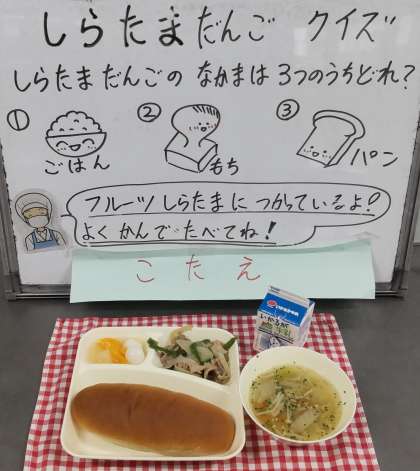 しらたまだんご クイズ
しらたまだんごの なかまは 3つのうちどれ？
① ② ③
ごはん もち パン
フルーツしらたまに つかっているよ！
よくかんでたべてね！
こたえ
いかるが